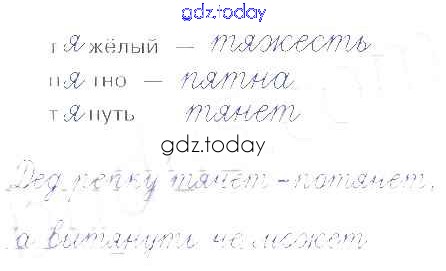 gdz.today
тяжёлый — тяжесть
пятно — пятна
тянуть тянет
gdz.today
Дед репку тянет – потянет,
а витянуть не может